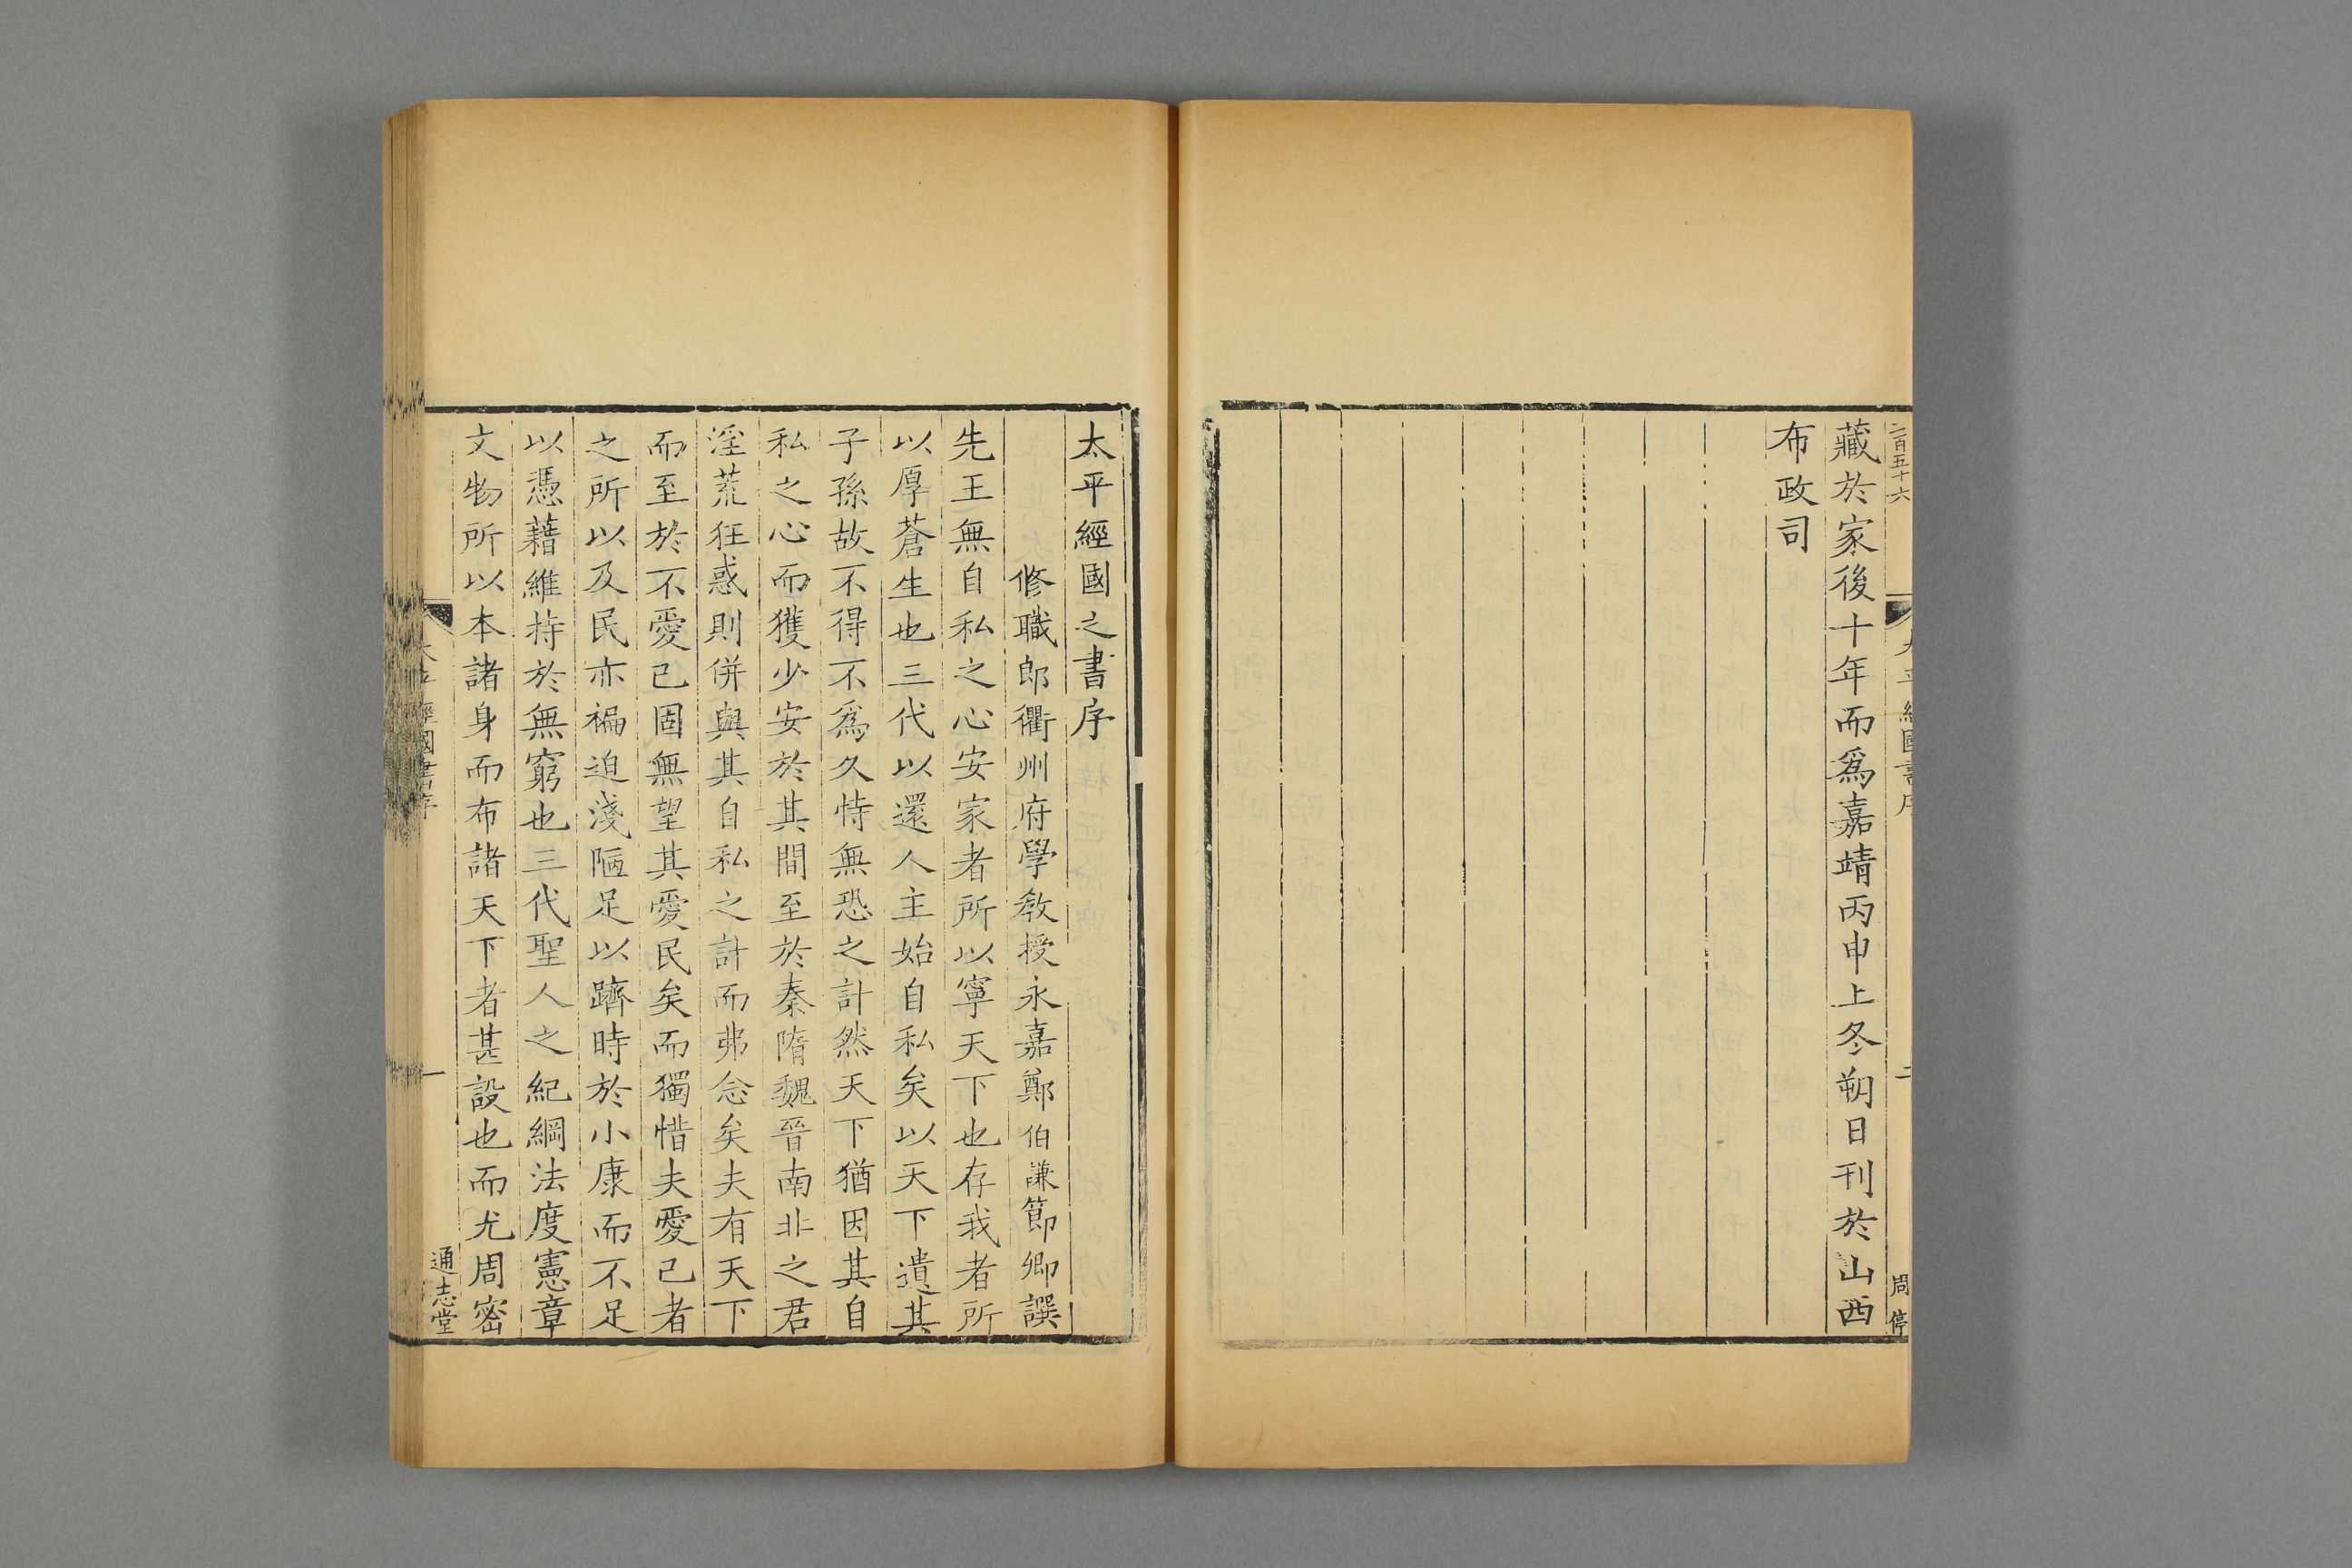 二百五十六
太平經國書序
二
周停
藏於家後十年而爲嘉靖丙申上冬朔日刊於山西
布政司
太平經國之書序
修職郎衢州府學教授永嘉鄭伯謙節卿譔
先王無自私之心安家者所以寧天下也存我者所
以厚蒼生也三代以還人主始自私矣以天下遺其
子孫故不得不爲久恃無恐之計然天下猶因其自
私之心而獲少安於其間至於秦隋魏晉南北之君
淫荒狂惑則併與其自私之計而弗念矣夫有天下
而至於不愛己固無望其愛民矣而獨惜夫愛己者
之所以及民亦褊迫淺陋足以躋時於小康而不足
以憑藉維持於無窮也三代聖人之紀綱法度憲章
文物所以本諸身而布諸天下者甚設也而尤周密
太平經國書序
一
通志堂